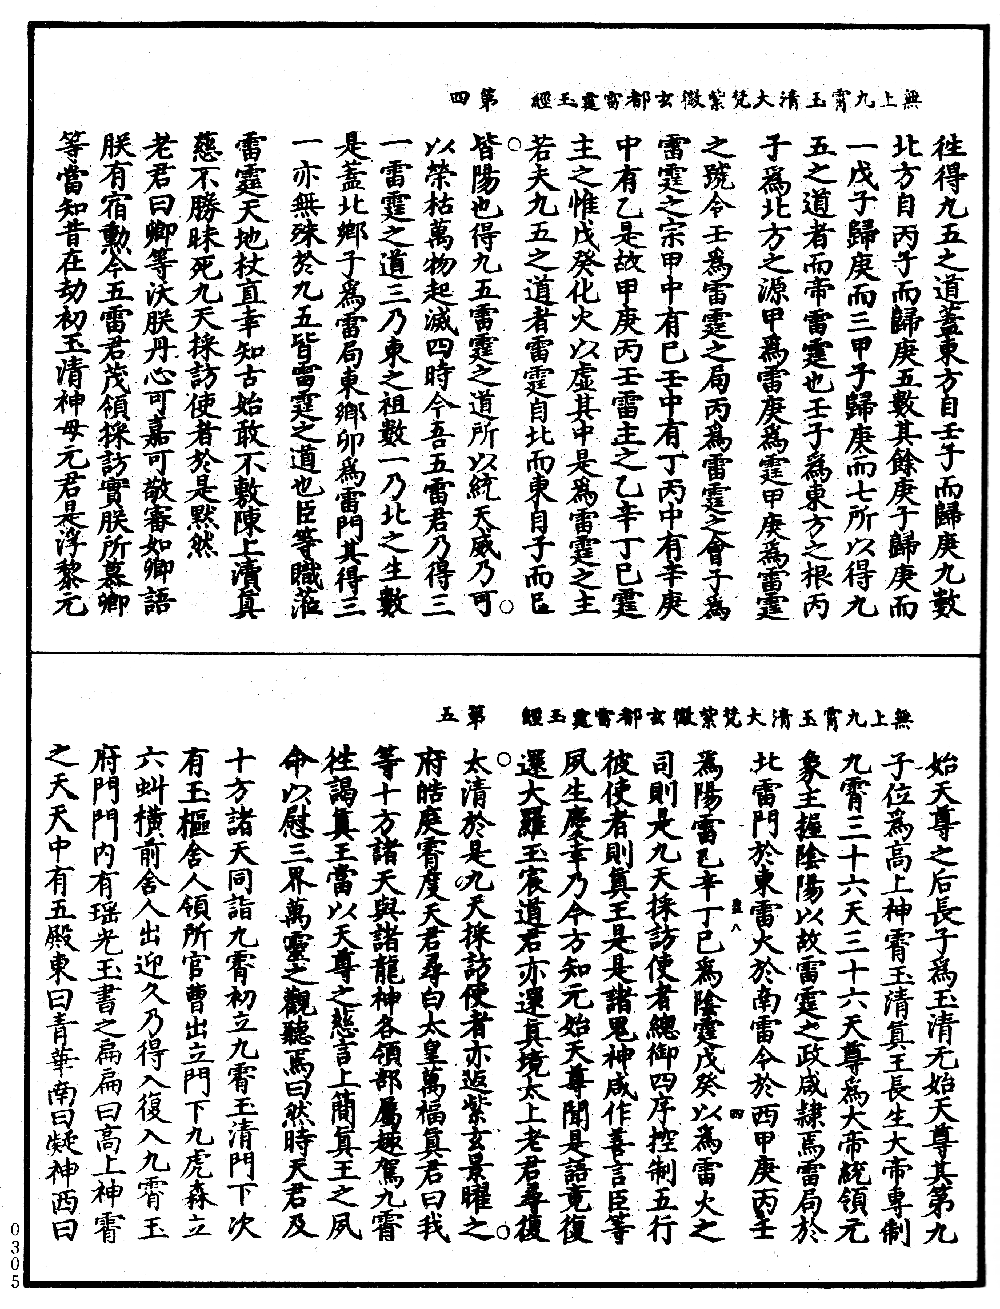 無上九霄玉清大梵紫微玄都雷霆玉經 第四
徃得九五之道蓋東方自壬子而歸庚九數
北方自丙子而歸庚五數其餘庚子歸庚而
一戊子歸庚而三甲子歸庚而七所以得九
五之道者而帝雷霆也壬子為東方之根丙
子為北方之源甲為雷庚為霆甲庚為雷霆
之號令壬為雷霆之局丙為雷霆之會子為
雷霆之宗甲中有己壬中有丁丙中有辛庚
中有乙是故甲庚丙壬雷主之乙辛丁巳霆
主之惟戊癸化火以虛其中是為雷霆之主
若夫九五之道者雷霆自北而東自子而巳
皆陽也得九五雷霆之道所以統天威乃可
以榮枯萬物起滅四時今吾五雷君乃得三
一雷霆之道三乃東之祖數一乃北之生數
是蓋北鄉子為雷局東鄉卯為雷門其得三
一亦無殊於九五皆雷霆之道也臣等職蒞
雷霆天地杖直幸知古始敢不敷陳上瀆真
慈不勝昧死九天採訪使者於是默然
老君曰卿等沃朕丹心可嘉可敬審如卿語
朕有宿勳今五雷君茂領採訪實朕所慕卿
等當知昔在劫初玉清神母元君是浮黎元
無上九霄玉清大梵紫微玄都雷霆玉經 第五
始天尊之后長子為玉清元始天尊其第九
子位為高上神霄玉清真王長生大帝專制
九霄三十六天三十六天尊為大帝統領元
象主握陰陽以故雷霆之政咸隸焉雷局於
北雷門於東雷火於南雷令於西甲庚丙壬
為陽雷乙辛丁巳為陰霆戊癸以為雷火之
司則是九天採訪使者總御四序控制五行
彼使者則真王是是諸鬼神咸作善言臣等
夙生慶幸乃今方知元始天尊聞是語竟復
還大羅玉宸道君亦還真境太上老君尋復
太清於是九天採訪使者亦返紫玄景曜之
府皓庭霄度天君尋白太皇萬福真君曰我
等十方諸天與諸龍神各領部屬趣駕九霄
徃謁真王當以天尊之慈言上簡真王之夙
命以慰三界萬靈之觀聽焉曰然時天君及
十方諸天同詣九霄初立九霄玉清門下次
有玉樞舍人領所官曹出立門下九虎森立
六虯橫前舍人出迎久乃得入復入九霄玉
府門門內有瑤光玉書之扁扁曰高上神霄
之天天中有五殿東曰青華南曰凝神西曰
0305